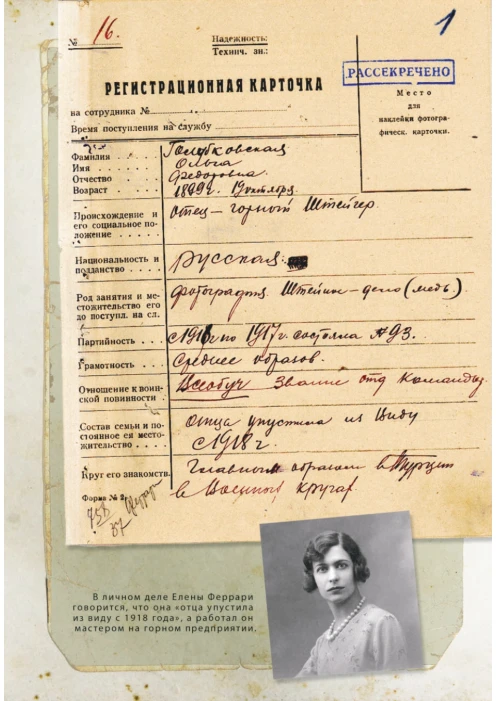 1
№ 16.
Надежность:
Технич. зн.:
РАССЕКРЕЧЕНО
РЕГИСТРАЦИОННАЯ КАРТОЧКА
Место
для
наклейки фотогра-
фическ. карточки.
на сотрудника №
Время поступления на службу
Фамилия Голубковская
Имя Ольга
Отчество Федоровна
Возраст 1899 г. 19 октября.
Происхождение и
его социальное по-
ложение
отец – горный Штейгер.
Национальность и
подданство
русская
Род занятия и ме-
стожительство его
до поступл. на сл.
фотография. Штейгин – дело (медь).
Партийность с 1916 г по 1917 г. состояла
Грамотность среднее образов.
Отношение к воин-
ской повинности
Всеобуч Звание отд Командыр.
Состав семьи и по-
стоянное ея место-
жительство
отца упустила из виду
с 1918 г.
Круг его знакомств. Главным образом в Турции
в Военных кругах.
Форма № 2.
Феррари
37
В личном деле Елены Феррари
говорится, что она «отца упустила
из виду с 1918 года», а работал он
мастером на горном предприятии.